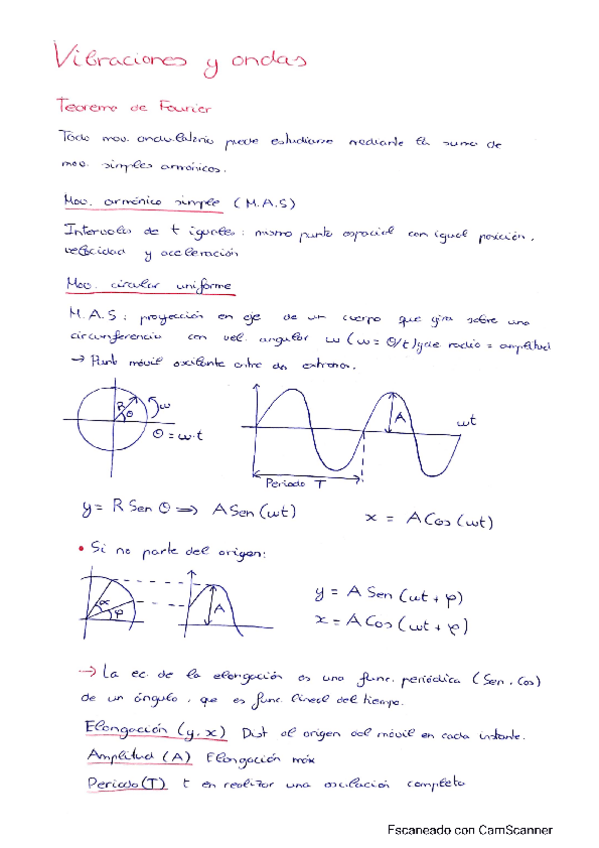 Vibraciones y ondas
Teorema de Fourier
Todo mov. ondulatorio puede estudiarse mediante la suma de
mov. simples armónicos.
Mov. armónico simple (M.A.S)
Intervalos de t iguales: mismo punto espacial con igual posición,
velocidad y aceleración
Mov. circular uniforme
M.A.S: proyección en eje de un cuerpo que gira sobre una
circunferencia con vel. angular ω (ω = θ/t) y de radio = amplitud
→ Punto móvil oscilante entre dos extremos.
R θ ω
θ = ω·t
A
ωt
Periodo T
y = R Sen θ ⇒ A Sen (ωt)
x = A Cos (ωt)
• Si no parte del origen:
α φ A
y = A Sen (ωt + φ)
x = A Cos (ωt + φ)
→ La ec. de la elongación es una func. periódica (Sen, Cos)
de un ángulo, que es func. lineal del tiempo.
Elongación (y, x) Dist al origen del móvil en cada instante.
Amplitud (A) Elongación máx
Periodo (T) t en realizar una oscilación completa
Escaneado con CamScanner